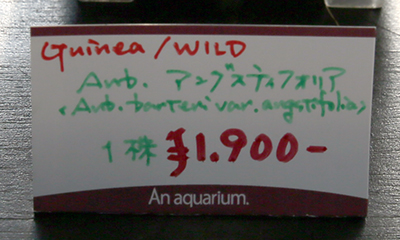 Guinea/WILD
Anb. アングスティフォリア
<Anb. barteri var. angstifolia>
1株 ¥1.900-
An aquarium.